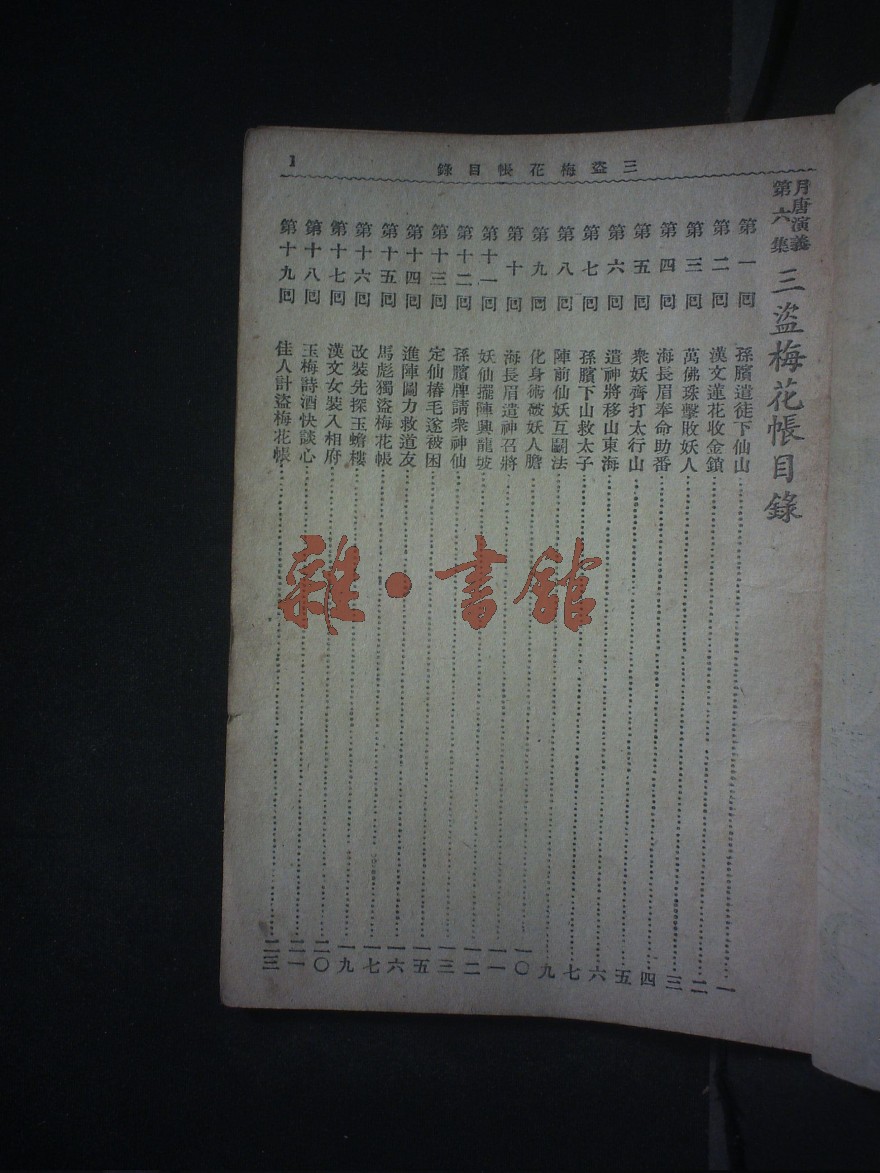 三盜梅花帳目錄
1
月唐演義
第六集
三盜梅花帳目錄
第一回 孫臏遣徒下仙山 一
第二回 漢文蓮花收金鎖 二
第三回 萬佛珠擊敗妖人 三
第四回 海長眉奉命助番 四
第五回 衆妖齊打太行山 五
第六回 遣神將移山東海 六
第七回 孫臏下山救太子 七
第八回 陣前仙妖互鬭法 九
第九回 化身術破妖人膽 一〇
第十回 海長眉遣神召將 一一
第十一回 妖仙擺陣興龍坡 一二
第十二回 孫臏牌請衆神仙 一三
第十三回 定仙椿毛遂被困 一五
第十四回 進陣圖力救道友 一六
第十五回 馬彪獨盜梅花帳 一七
第十六回 改裝先探玉蟾樓 一九
第十七回 漢文女裝入相府 二〇
第十八回 玉梅詩酒快談心 二一
第十九回 佳人計盜梅花帳 二三
雜·書館